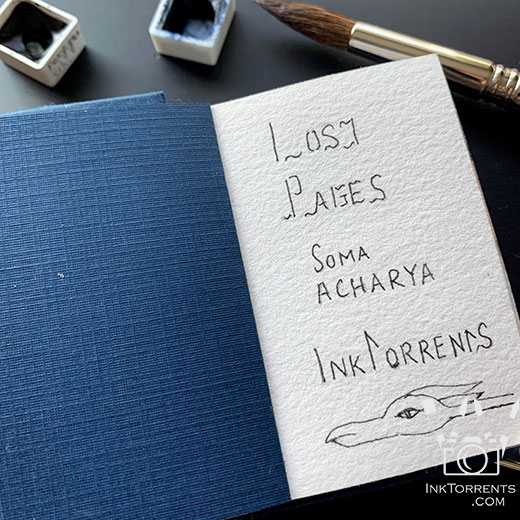 LOST
PAGES
SOMA
ACHARYA
INKTORRENTS
INKTORRENTS
.COM